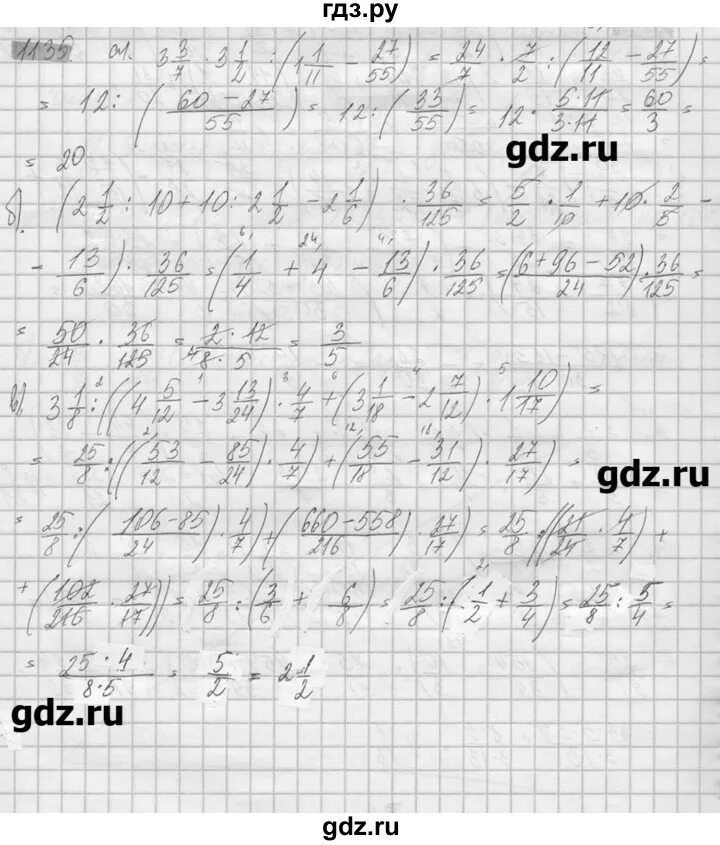 гдз.ру
1135. а). 3 3/7 · 3 1/2 : (1 1/11 − 27/55) = 24/7 · 7/2 : (12/11 − 27/55) =
= 12 : ((60 − 27)/55) = 12 : (33/55) = 12 · (5·11)/(3·11) = 60/3 =
gdz.ru
= 20
б). (2 1/2 : 10 + 10 : 2 1/2 − 2 1/6) · 36/125 = 5/2 · 1/10 + 10 · 2/5 −
− 13/6) · 36/125 = (1/4 + 4 − 13/6) · 36/125 = ((6 + 96 − 52)/24) · 36/125 =
= 50/24 · 36/125 = (2 · 12)/(8 · 5) = 3/5
в). 3 1/8 : ((4 5/12 − 3 13/24) · 4/7 + (3 1/18 − 2 7/12) · 1 10/17) =
= 25/8 : ((53/12 − 85/24) · 4/7) + (55/18 − 31/12) · 27/17) =
gdz.ru
= 25/8 : ((106 − 85)/24) · 4/7) + ((660 − 558)/216) · 27/17) = 25/8 : ((21/24 · 4/7) +
+ (102/216 · 27/17)) = 25/8 : (3/6 + 6/8) = 25/8 : (1/2 + 3/4) = 25/8 : 5/4 =
= (25 · 4)/(8 · 5) = 5/2 = 2 1/2
gdz.ru
gdz.ru